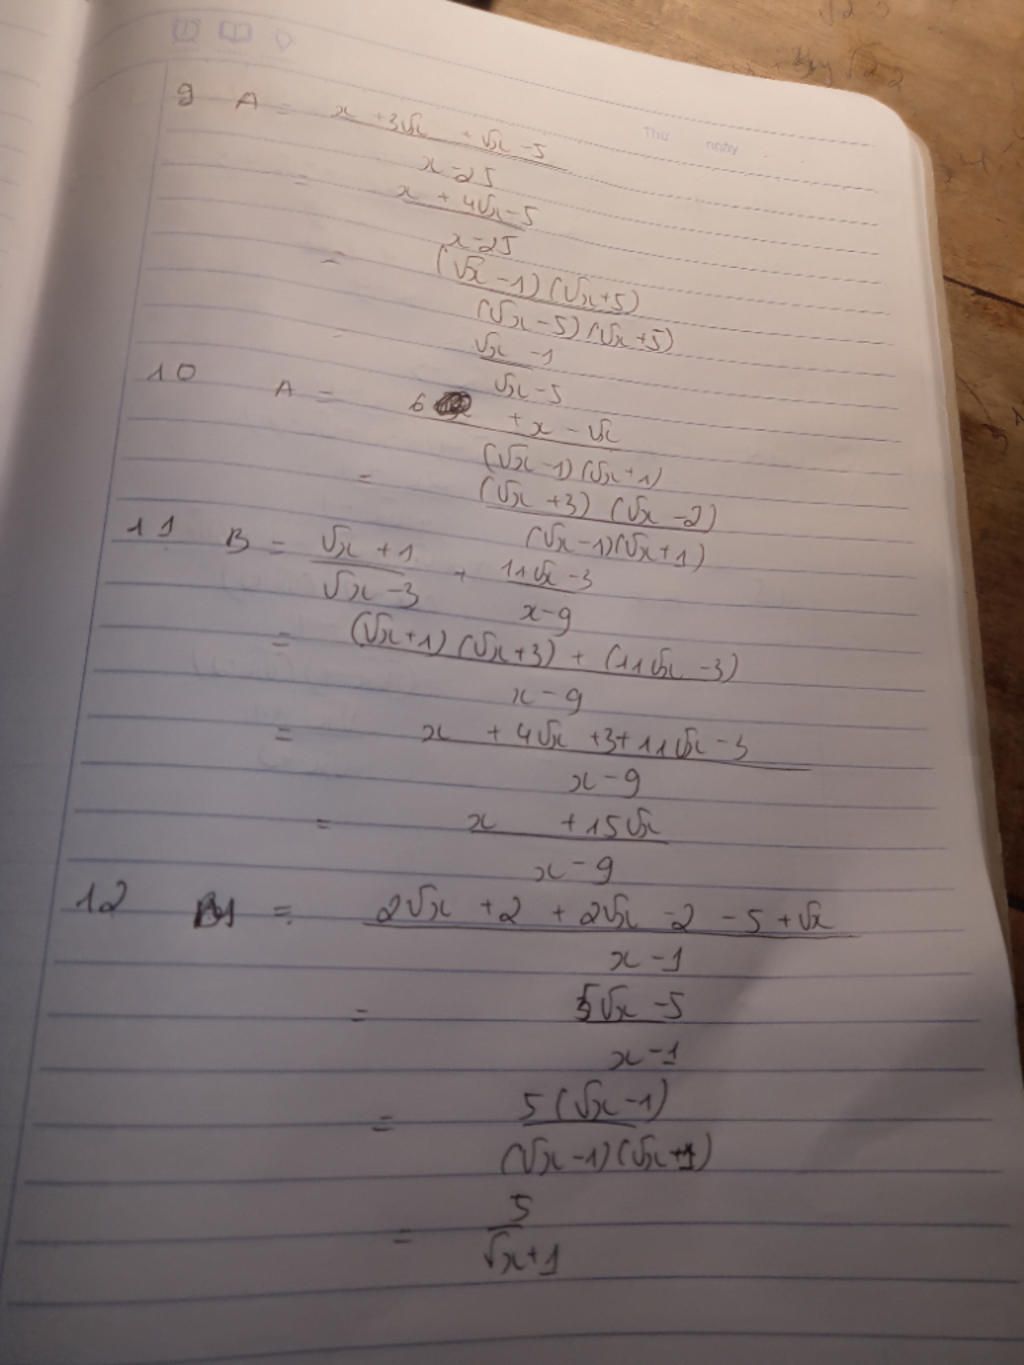 Thứ ngày
9 A = x + 3√x + √x - 5
x - 25
= x + 4√x - 5
x - 25
= (√x - 1)(√x + 5)
(√x - 5)(√x + 5)
= √x - 1
√x - 5
10 A = 6 + x - √x
(√x - 1)(√x + 1)
= (√x + 3)(√x - 2)
(√x - 1)(√x + 1)
11 B = √x + 1 + 11√x - 3
√x - 3 x - 9
= (√x + 1)(√x + 3) + (11√x - 3)
x - 9
= x + 4√x + 3 + 11√x - 3
x - 9
= x + 15√x
x - 9
12 = 2√x + 2 + 2√x - 2 - 5 + √x
x - 1
= 5√x - 5
x - 1
= 5(√x - 1)
(√x - 1)(√x + 1)
= 5
√x + 1